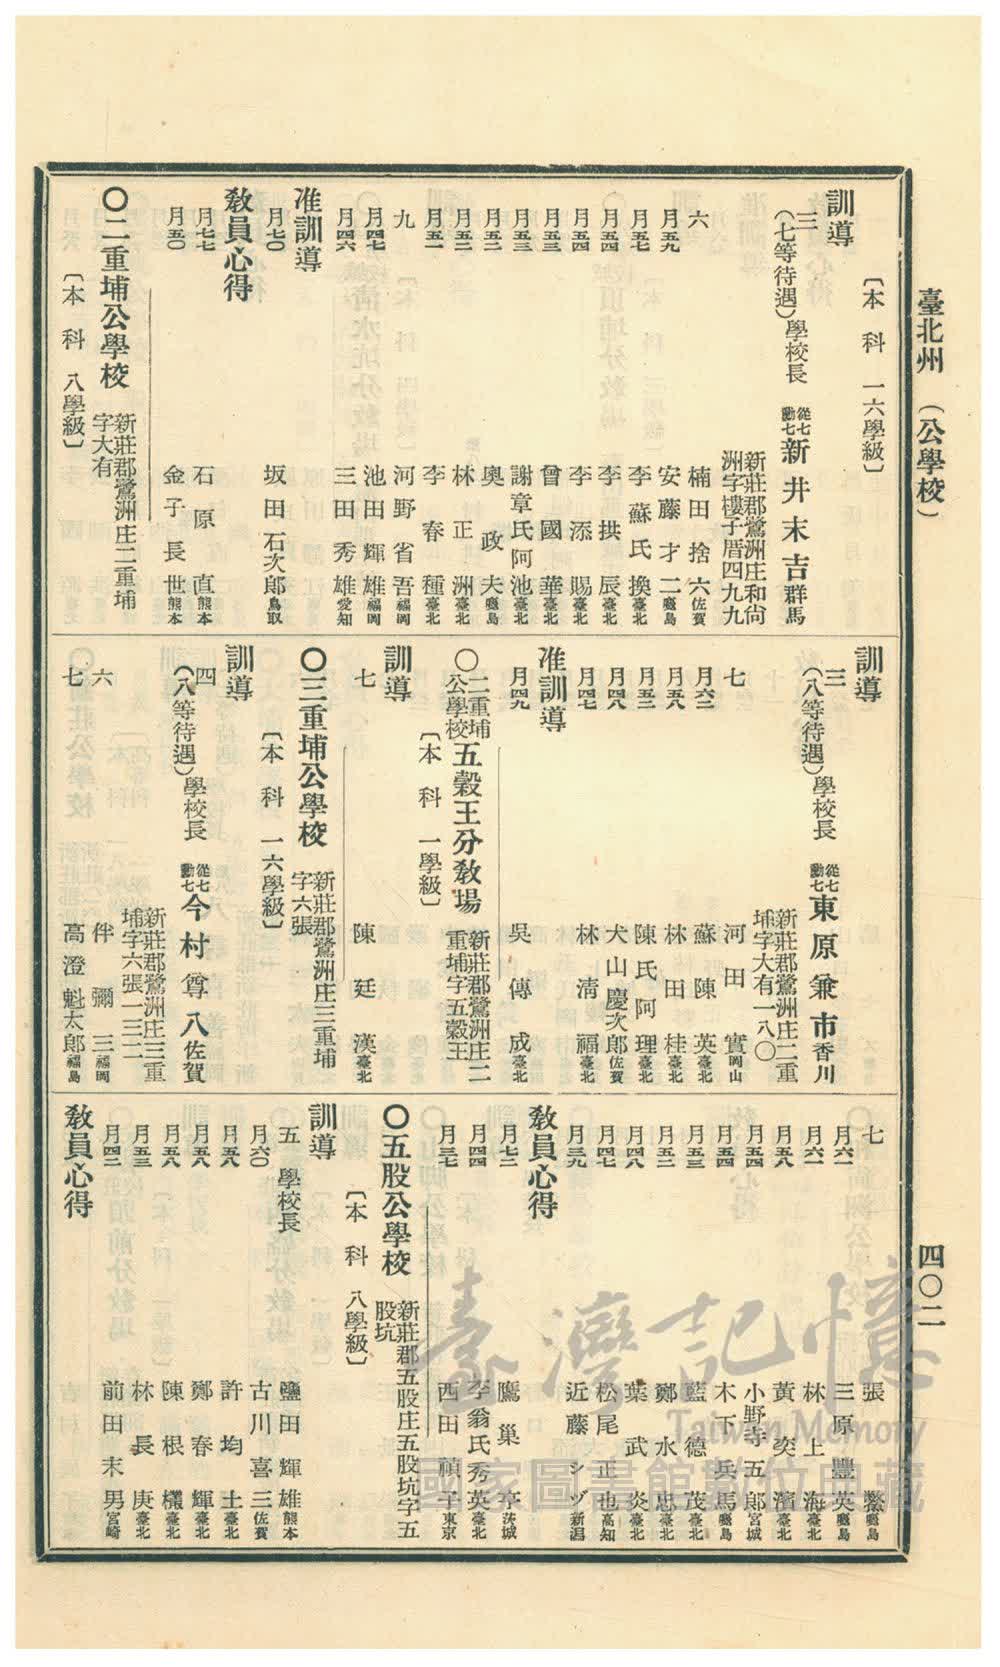 臺北州 (公學校)
四〇二
〔本科 一六學級〕
訓導
三(七等待遇)學校長 從七勳七 新井末吉 群馬
新莊郡鷺洲庄和尙
洲字樓子厝四九九
六 楠田捨六 佐賀
月五九 安藤才二 鹿島
月五七 李蘇氏換 臺北
月五四 李拱辰 臺北
月五四 李添賜 臺北
月五三 曾國華 臺北
月五三 謝章氏阿池 臺北
月五二 奧政夫 鹿島
月五二 林正洲 臺北
月五一 李春種 臺北
九 河野省吾 福岡
月四七 池田輝雄 福岡
月四六 三田秀雄 愛知
准訓導
月七〇 坂田石次郎 鳥取
敎員心得
月七七 石原直 熊本
月五〇 金子長世 熊本
〇二重埔公學校 新莊郡鷺洲庄二重埔
字大有
〔本科 八學級〕
訓導
三(八等待遇)學校長 從七勳七 東原兼市 香川
新莊郡鷺洲庄二重
埔字大有一八〇
七 河田實 岡山
月六二 蘇陳英 臺北
月五八 林田桂 臺北
月五三 陳氏阿理 臺北
月四八 犬山慶次郎 佐賀
月四七 林清福 臺北
准訓導
月四九 吳傳成 臺北
〇二重埔公學校 五穀王分敎場 新莊郡鷺洲庄二
重埔字五穀王
〔本科 一學級〕
訓導
七 陳廷漢 臺北
〇三重埔公學校 新莊郡鷺洲庄三重埔
字六張
〔本科 一六學級〕
訓導
四(八等待遇)學校長 從七勳七 今村尊八 佐賀
新莊郡鷺洲庄三重
埔字六張一三二
六 伴彌三 福岡
七 高澄魁太郎 福島
七 張繁 鹿島
月六一 三原豐英 鹿島
月六一 林上海 臺北
月五八 黃奕濱 臺北
月五四 小野寺五郎 宮城
月五四 木下兵馬 鹿島
月五三 藍德茂 臺北
月五二 鄭水忠 臺北
月四八 葉武炎 臺北
月四七 松尾正也 高知
月三九 近藤シヅ 新潟
敎員心得
月七二 鷹巢亭 茨城
月四四 李翁氏秀英 臺北
月三七 西田禎子 東京
〇五股公學校 新莊郡五股庄五股坑字五
股坑
〔本科 八學級〕
訓導
五 學校長 鹽田輝雄 熊本
月六〇 古川喜三 佐賀
月五八 許均土 臺北
月五八 鄭春輝 臺北
月五八 陳根 臺北
月五三 林長庚 臺北
月四二 前田末男 宮崎
敎員心得
臺灣記憶
Taiwan Memory
國家圖書館數位典藏